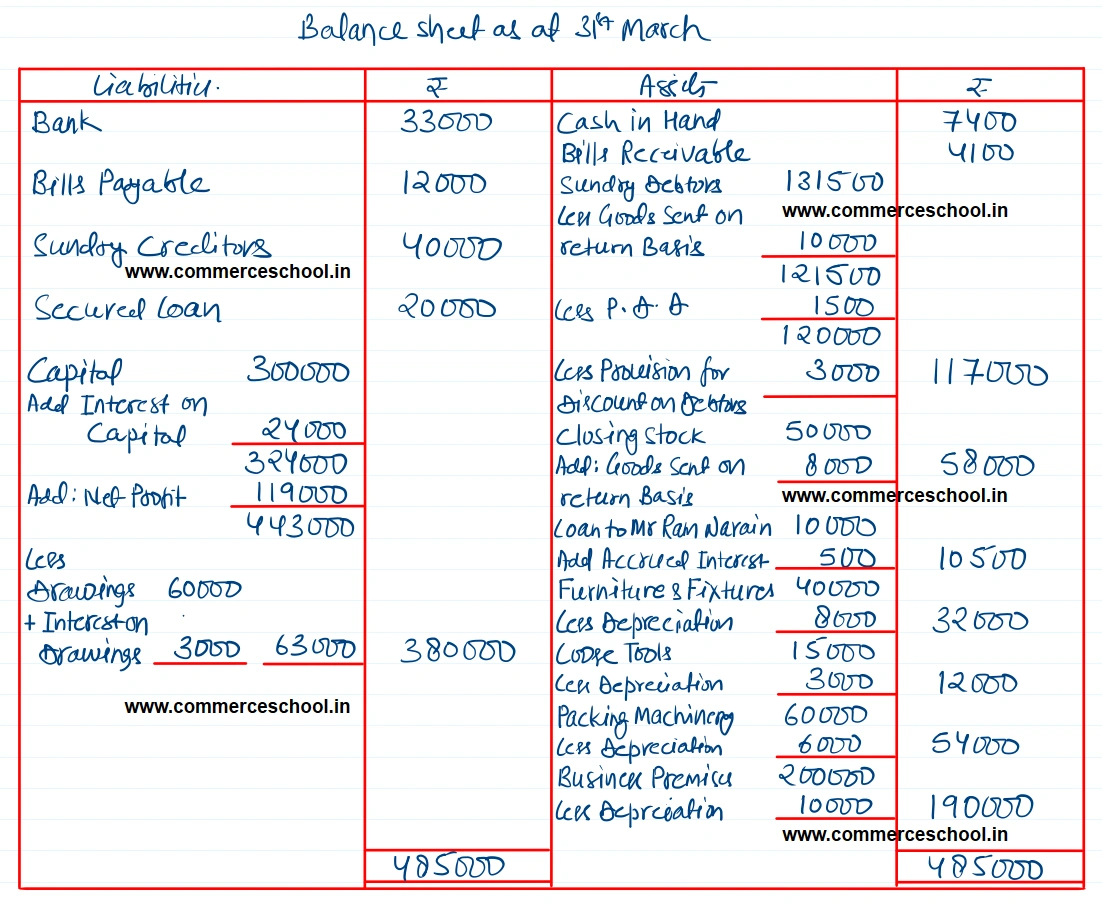 Balance sheet as at 31st March
Liabilities. ₹ Assets ₹
Bank 33000 Cash in Hand 7400
Bills Receivable 4100
Bills Payable 12000 Sundry Debtors 131500
Less Goods Sent on www.commerceschool.in
Sundry Creditors 40000 return Basis 10000
www.commerceschool.in 121500
Secured Loan 20000 Less P.D.D 1500
120000
Capital 300000 Less Provision for 3000 117000
Add Interest on Discount on Debtors
Capital 24000 Closing Stock 50000
324000 Add: Goods Sent on 8000 58000
Add: Net Profit 119000 return Basis www.commerceschool.in
443000 Loan to Mr Ram Narain 10000
Less Add Accrued Interest 500 10500
Drawings 60000 Furniture & Fixtures 40000
+ Interest on Less Depreciation 8000 32000
Drawings 3000 63000 380000 Loose Tools 15000
Less Depreciation 3000 12000
www.commerceschool.in Packing Machinery 60000
Less Depreciation 6000 54000
Business Premises 200000
Less Depreciation 10000 190000
www.commerceschool.in
485000 485000